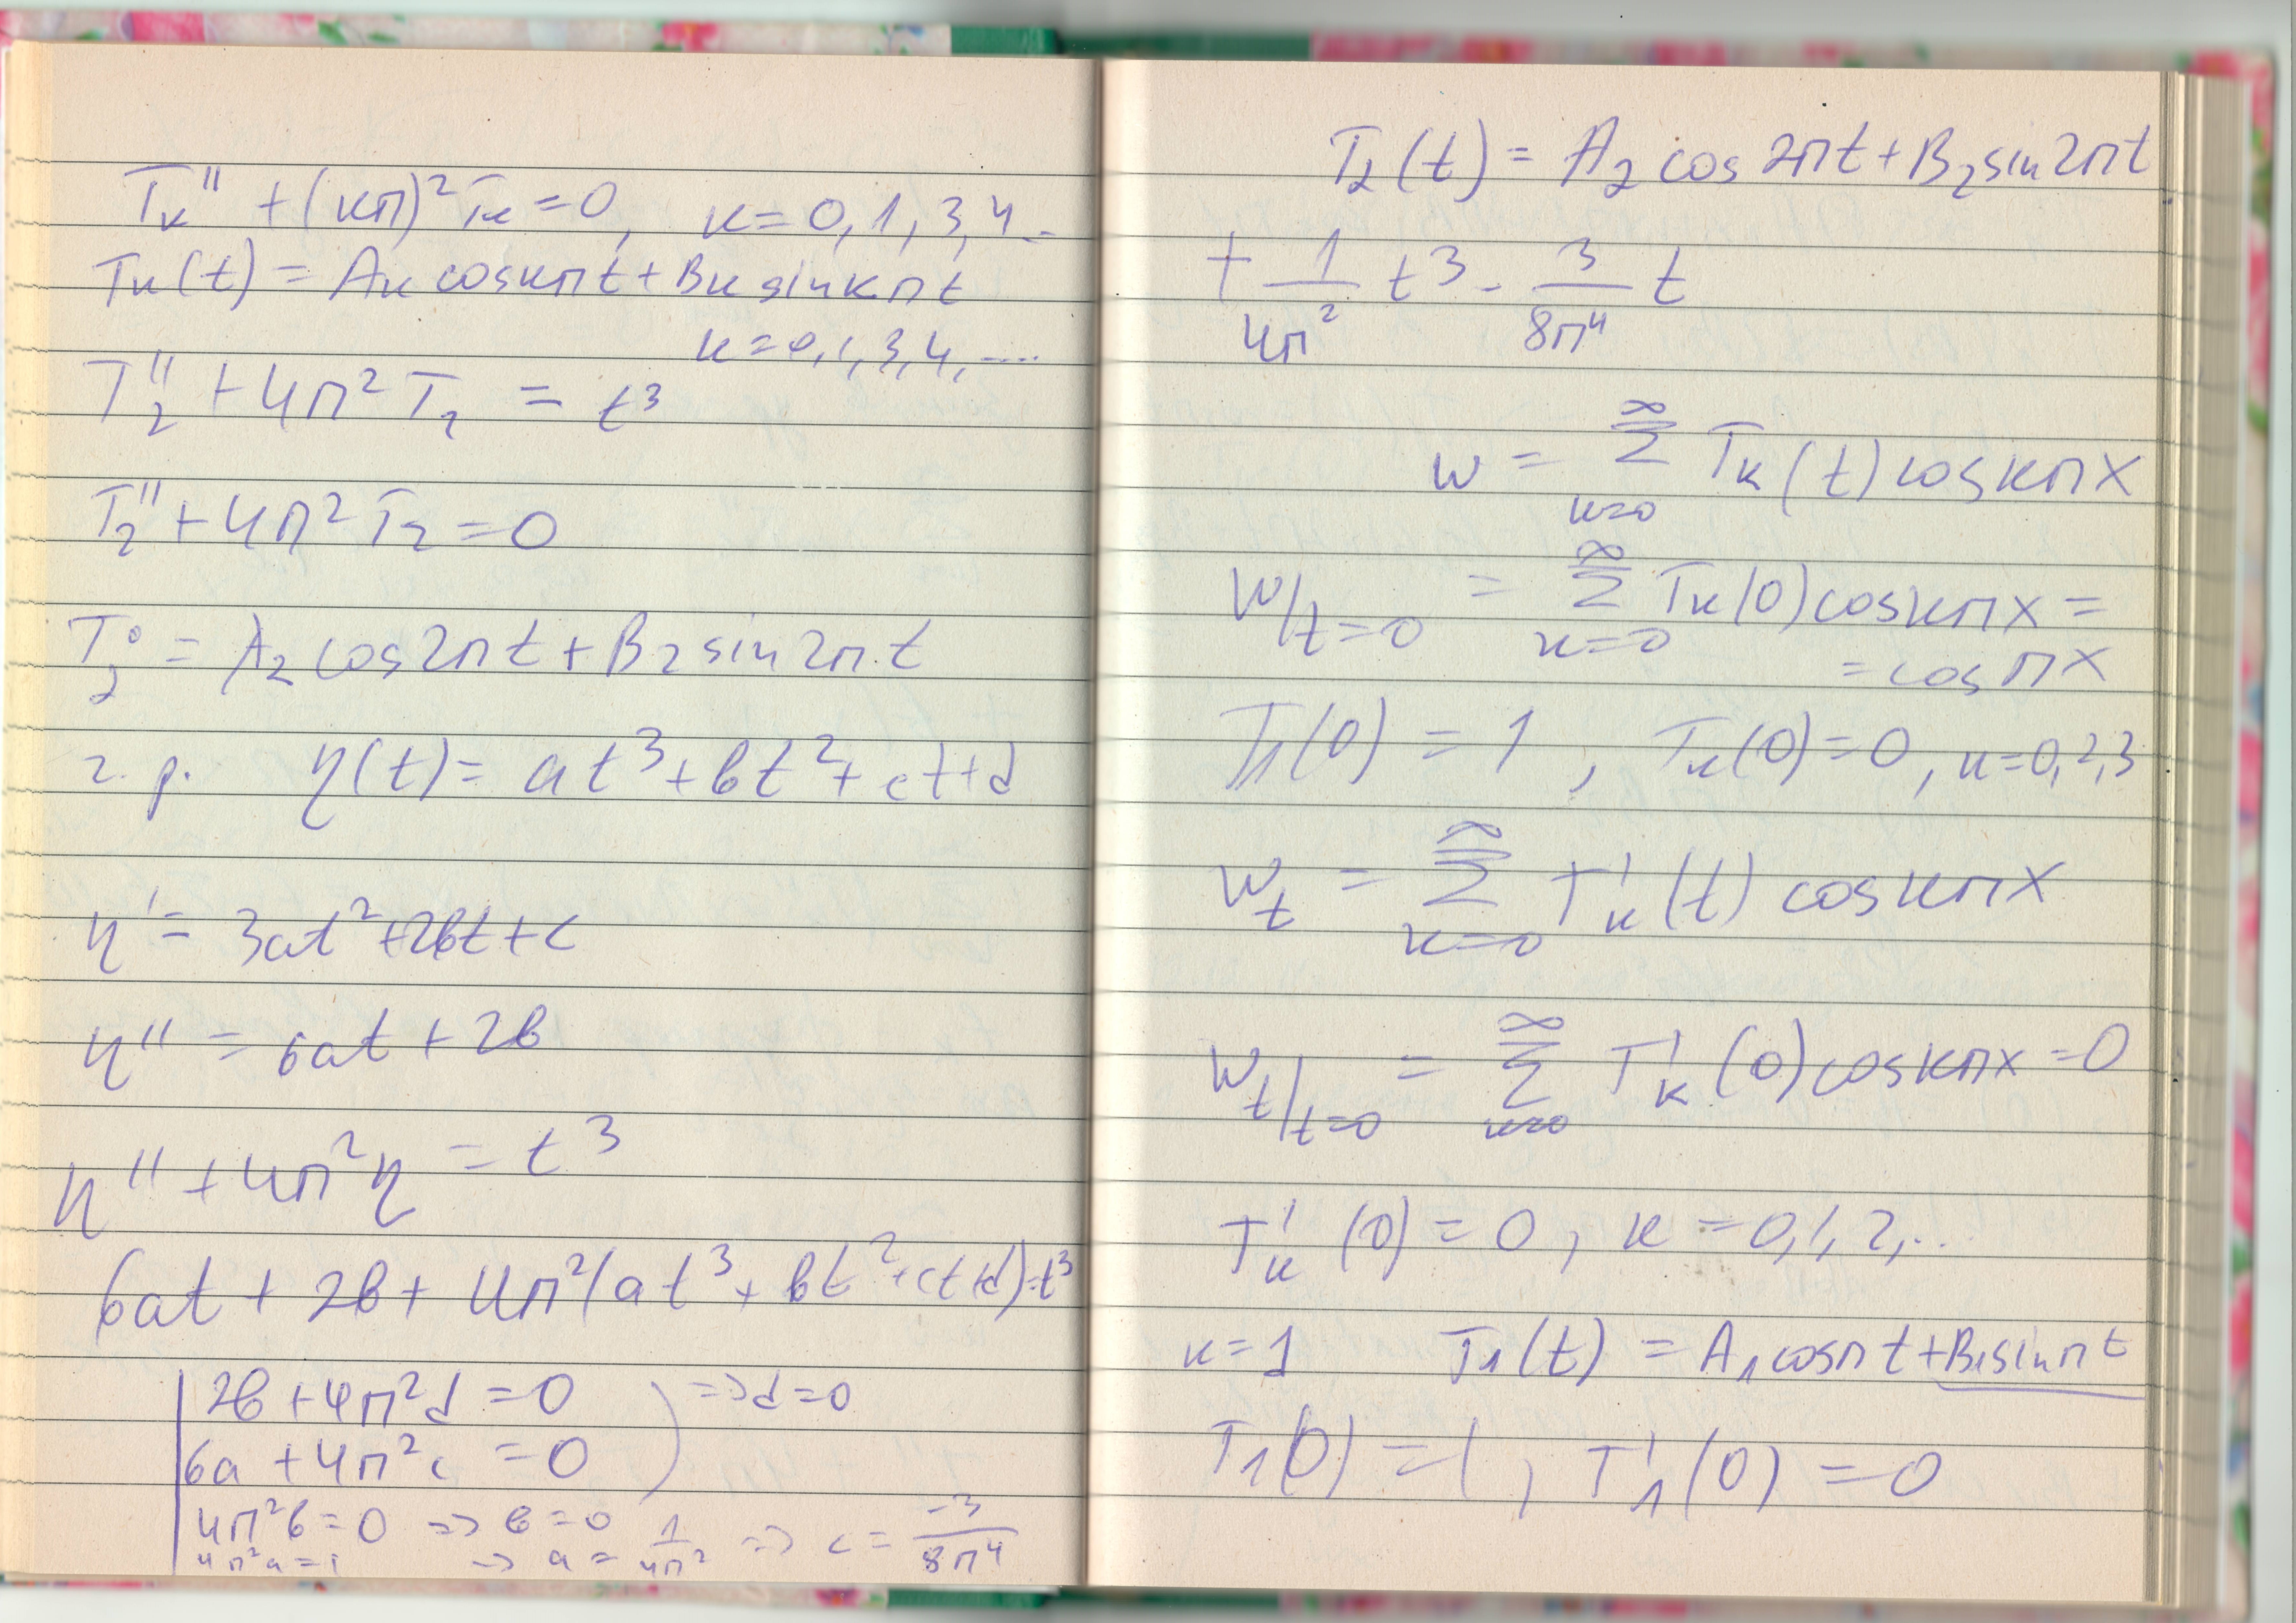 Tк'' + (кп)² Tк = 0, к = 0, 1, 3, 4..
Tк(t) = Aк cosкпt + Bк sinкпt
к = 0, 1, 3, 4, ....
T₂'' + 4п² T₂ = t³
T₂'' + 4п² T₂ = 0
T₂⁰ = A₂ cos2пt + B₂ sin2п.t
ч. р. η(t) = at³ + bt² + ct + d
η' = 3at² + 2bt + c
η'' = 6at + 2b
η'' + 4п²η = t³
6at + 2b + 4п²(at³ + bt² + ct + d) = t³
2b + 4п²d = 0 ) => d = 0
6a + 4п²c = 0
4п²b = 0 => b = 0
4п²a = 1 => a = 1/4п² => c = -3/8п⁴
T₂(t) = A₂ cos 2пt + B₂ sin 2пt
+ 1/4п² t³ - 3/8п⁴ t
w = ∞∑к=0 Tк(t) cosкпx
w/t=0 = ∞∑к=0 Tк(0) cosкпx =
= cos пx
T₁(0) = 1, Tк(0) = 0, к = 0, 2, 3
wt = ∞∑к=0 T'к(t) cosкпx
wt/t=0 = ∞∑к=0 T'к(0) cosкпx = 0
T'к(0) = 0, к = 0, 1, 2, ...
к = 1 T₁(t) = A₁ cosпt + B₁ sinпt
T₁(0) = 1, T'₁(0) = 0